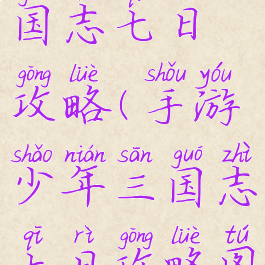 国志七日
gōng lüè shǒu yóu
攻略(手游
shǎo nián sān guó zhì
少年三国志
qī rì gōng lüè tú
七日攻略图